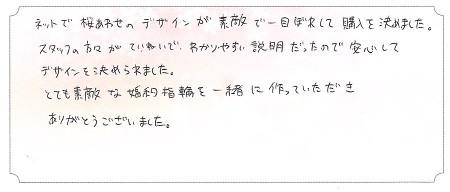 ネットで桜あわせのデザインが素敵で一目ぼれして購入を決めました。
スタッフの方々がていねいで、わかりやすい説明だったので安心して
デザインを決められました。
とても素敵な婚約指輪を一緒に作っていただき
ありがとうございました。